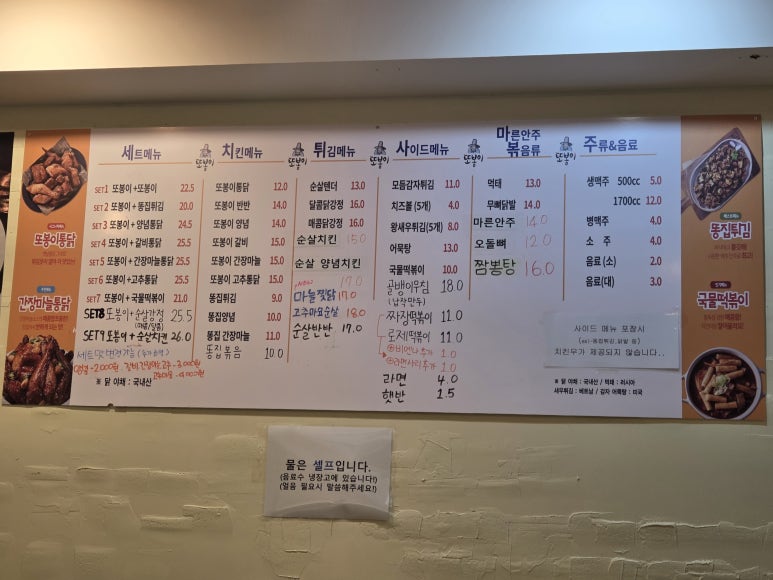 세트메뉴
SET1 또봉이+또봉이 22.5
SET2 또봉이+똥집튀김 20.0
SET3 또봉이+양념통닭 24.5
SET4 또봉이+갈비통닭 25.5
SET5 또봉이+간장마늘통닭 25.5
SET6 또봉이+고추통닭 25.5
SET7 또봉이+국물떡볶이 21.0
SET8 또봉이+순살강정 25.5
(매콤/달콤)
SET9 또봉이+순살치킨 26.0
※ 닭 야채 : 국내산
또봉이
치킨메뉴
또봉이통닭 12.0
또봉이 반반 14.0
또봉이 양념 14.0
또봉이 갈비 15.0
또봉이 간장마늘 15.0
또봉이 고추통닭 15.0
똥집튀김 9.0
똥집양념 10.0
똥집 간장마늘 11.0
똥집볶음 10.0
또봉이
튀김메뉴
순살텐더 13.0
달콤닭강정 16.0
매콤닭강정 16.0
순살치킨 15.0
순살 양념치킨
17.0
NEW
마늘찜닭 17.0
고추마요순살 18.0
순살반반 17.0
또봉이
사이드메뉴
모듬감자튀김 11.0
치즈볼 (5개) 4.0
왕새우튀김(5개) 8.0
어묵탕 13.0
국물떡볶이 10.0
골뱅이무침 18.0
(납작만두)
짜장떡볶이 11.0
로제떡볶이 11.0
비엔나추가 1.0
라면사리추가 1.0
라면 4.0
햇반 1.5
또봉이
마른안주
볶음류
먹태 13.0
무뼈닭발 14.0
마른안주 14.0
오돌뼈 12.0
짬뽕탕 16.0
또봉이
주류&음료
생맥주 500cc 5.0
1700cc 12.0
병맥주 4.0
소 주 4.0
음료(소) 2.0
음료(대) 3.0
사이드 메뉴 포장시
(ex)-똥집튀김,닭발 등)
치킨무가 제공되지 않습니다..
※ 닭 야채 : 국내산 / 먹태 : 러시아
새우튀김 : 베트남 / 감자 어묵탕 : 미국
또봉이통닭
간장마늘통닭
똥집튀김
국물떡볶이
물은 셀프입니다.
(음료수 냉장고에 있습니다!)
(얼음 필요시 말씀해주세요!)